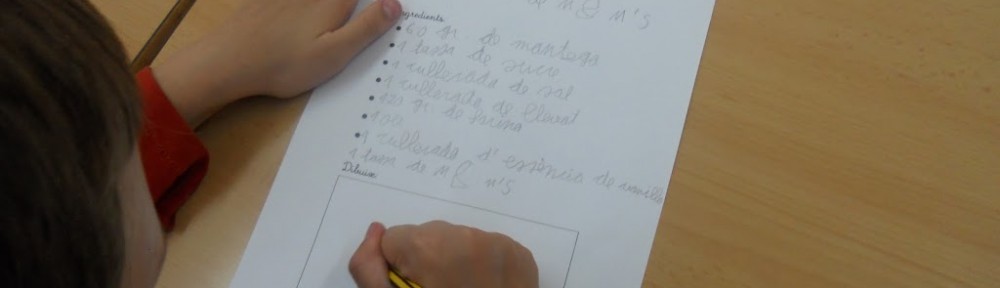 de M & M's
Ingredients
60 gr de mantega
1 tassa de sucre
1 cullerada de sal
1 cullerada de llevat
120 gr de farina
1 ou
1 cullerada d'essència de vainilla
1 tassa de M & M's
Dibuix: